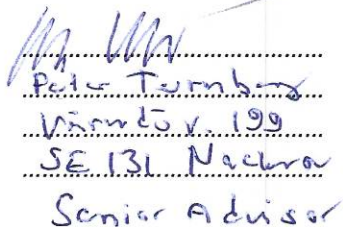 Peter Turnborg
Värmdö v. 199
SE 131 Nacka
Senior Advisor